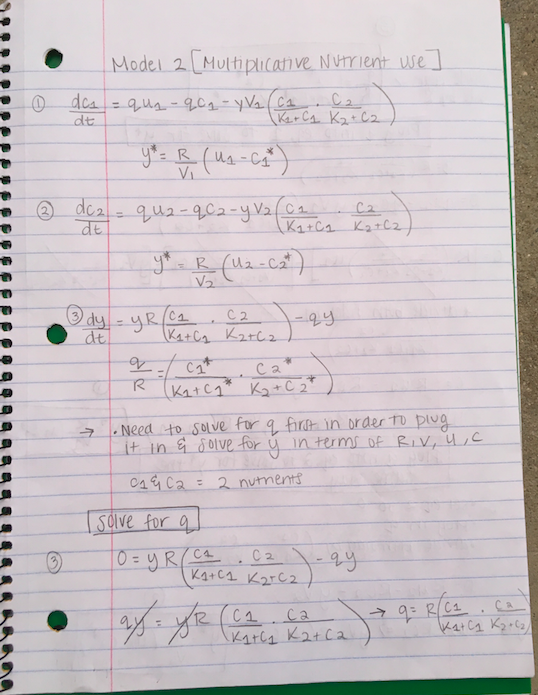 Model 2 [Multiplicative Nutrient use]
① dc1/dt = qu1 - qc1 - yV1 (c1/(K1+C1) · C2/(K2+C2))
y* = R/V1 (u1 - c1*)
② dc2/dt = qu2 - qc2 - yV2 (c1/(K1+C1) · C2/(K2+C2))
y* = R/V2 (u2 - c2*)
③ dy/dt = yR (c1/(K1+C1) · C2/(K2+C2)) - qy
q/R = (C1*/(K1+C1*) · C2*/(K2+C2*))
→ · Need to solve for q first in order to plug
it in & solve for y in terms of R, V, u, c
c1 & c2 = 2 nutrients
solve for q
③ 0 = yR (c1/(K1+C1) · C2/(K2+C2)) - qy
qy = yR (C1/(K1+C1) · C2/(K2+C2)) → q = R (C1/(K1+C1) · C2/(K2+C2))